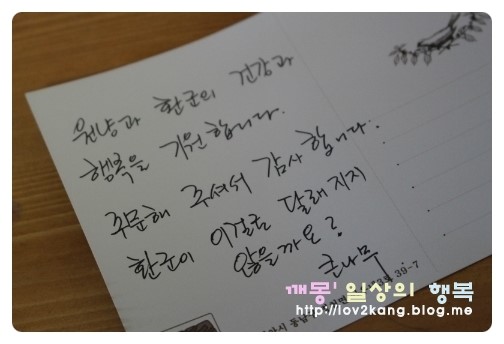 원냥과 환군의 건강과
행복을 기원합니다.
주문해 주셔서 감사합니다.
환군이 이걸로 달래지지
않을까요?
큰나무
39-7
깨몽' 일상의 행복
http://lov2kang.blog.me